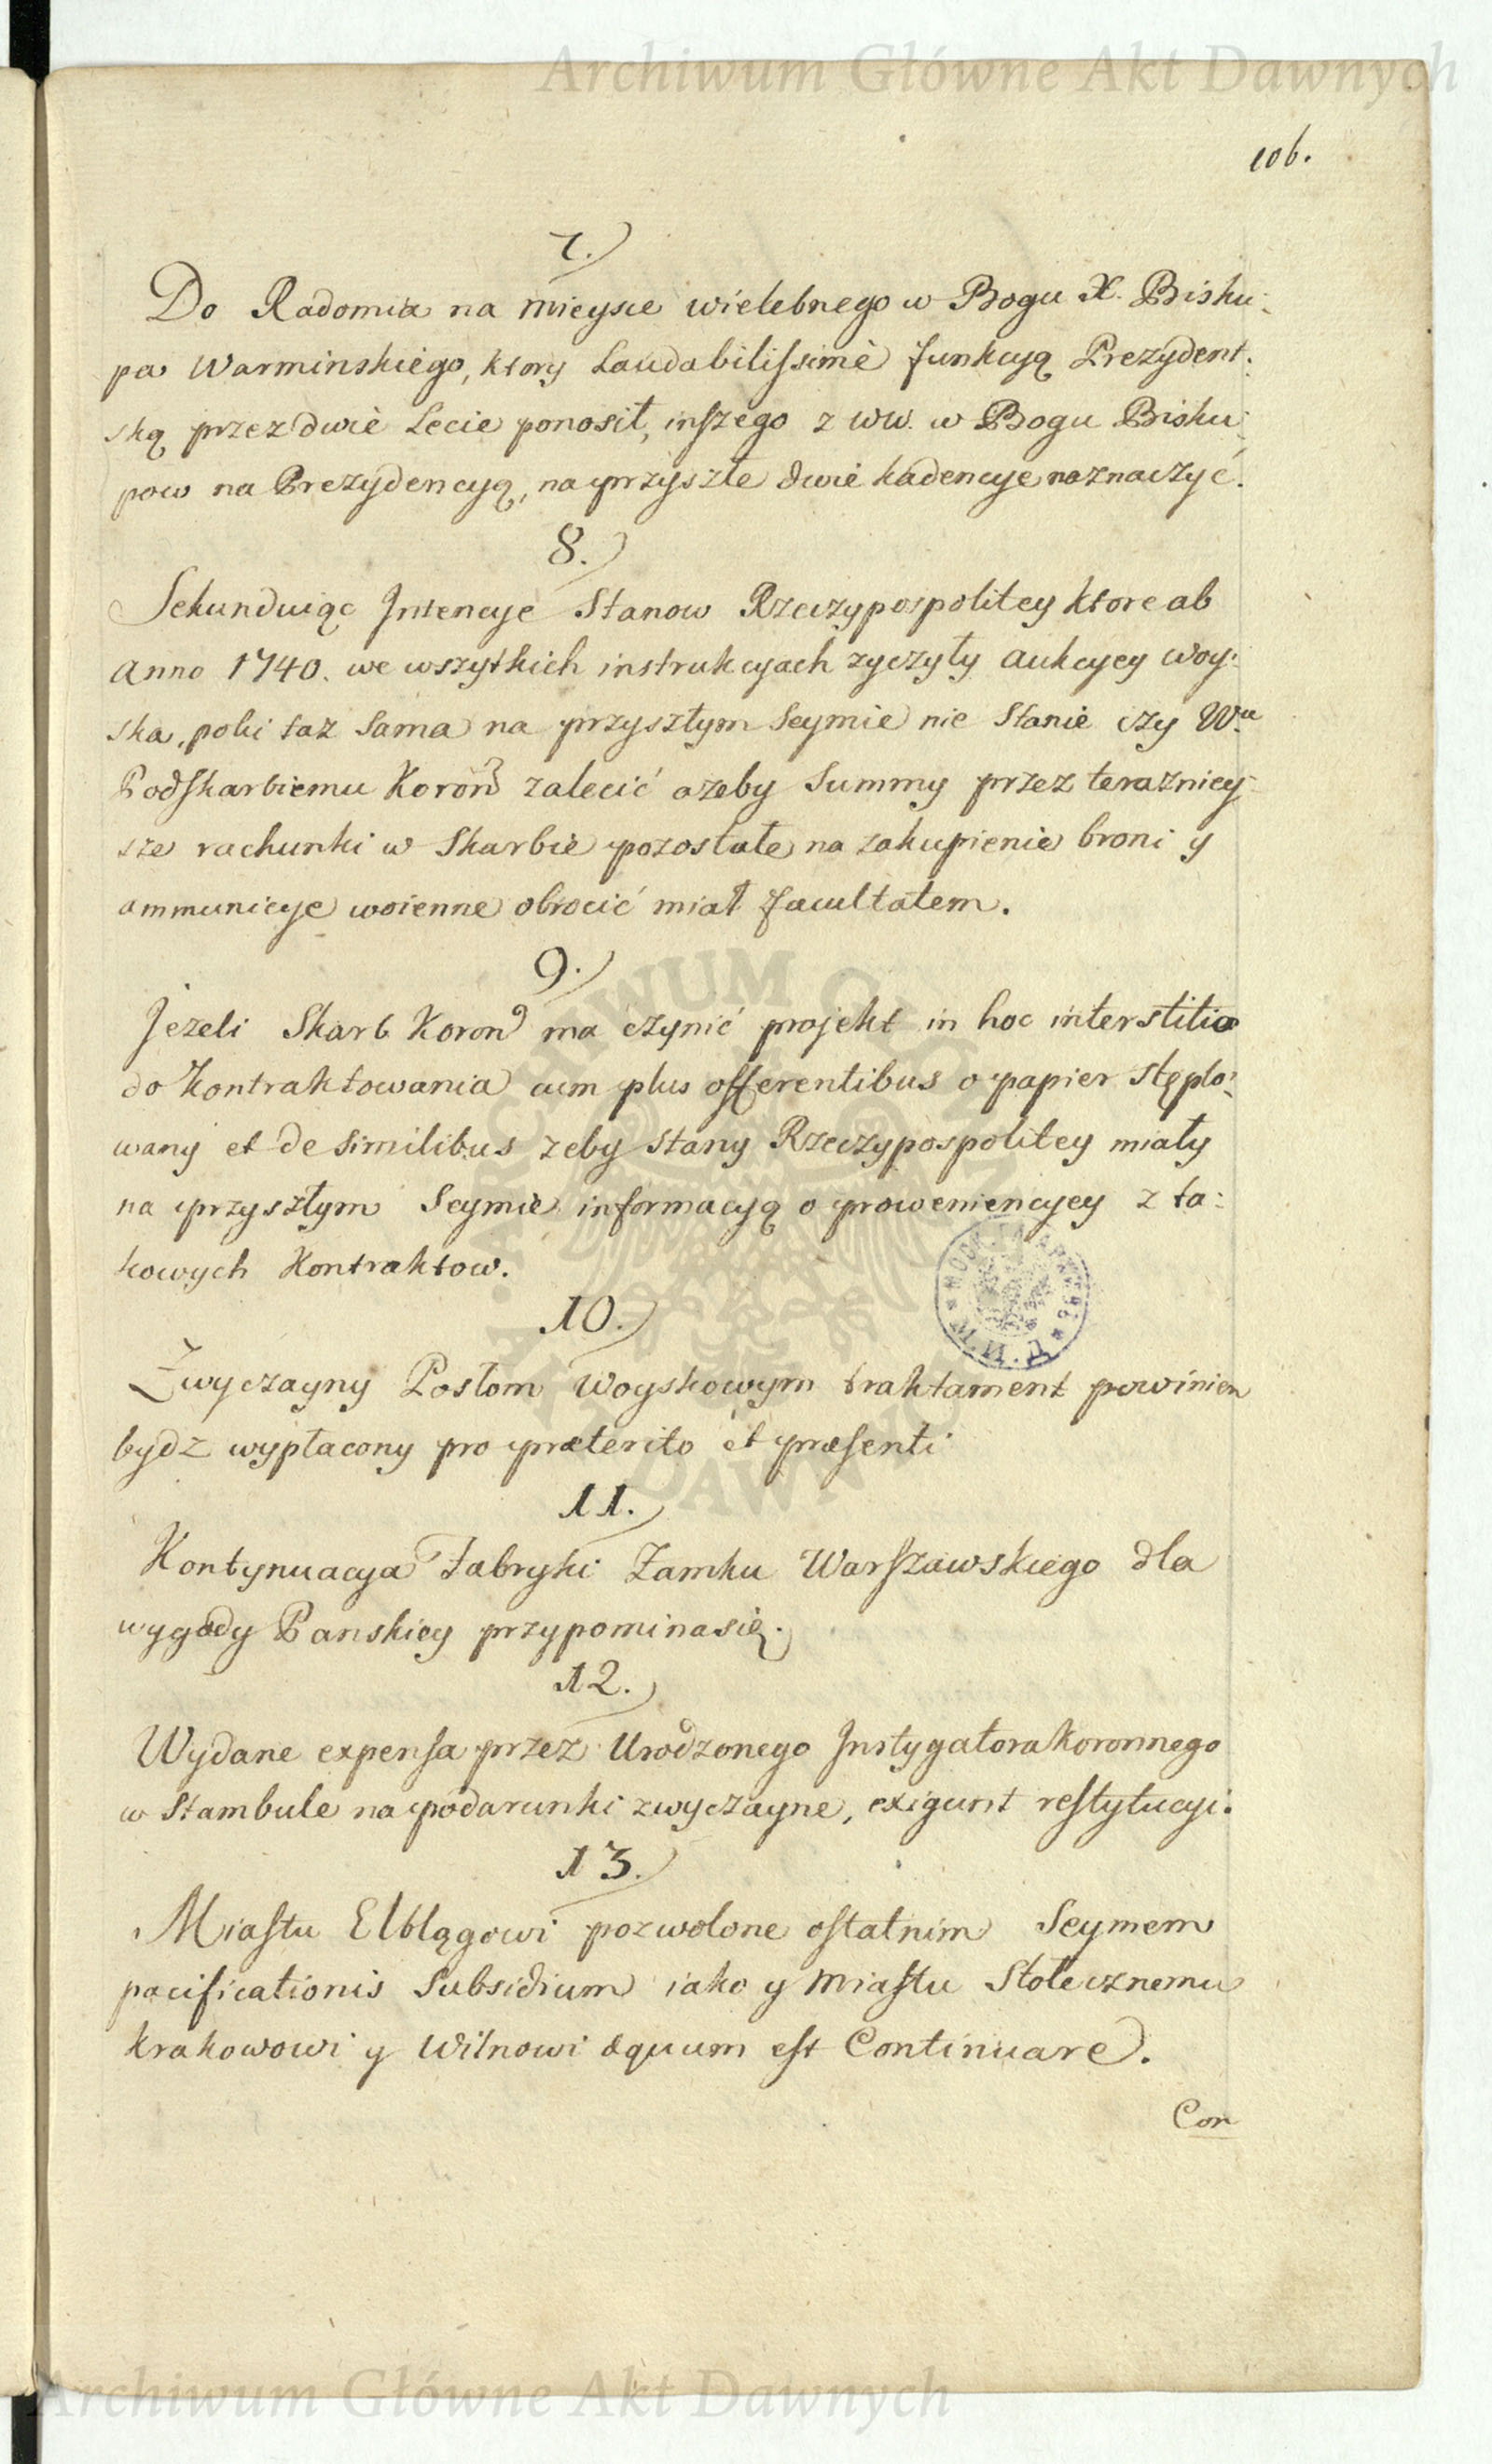 Archiwum Główne Akt Dawnych
106.
7.)
Do Radomia na mieysce wielebnego w Bogu X. Bisku:
pa Warminskiego, ktory Laudabilissimè funkcyą Prezydent:
ską przez dwie Lecie ponosił, inszego z WW. w Bogu Bisku:
pow na Prezydencyą, na przyszłe dwie kadencye naznaczyć.
8.)
Sekunduiąc Intencye Stanow Rzeczypospolitey ktore ab
Anno 1740. we wszytkich instrukcyach zyczyły aukcyey woy:
ska, poki taz sama na przyszłym Seymie nie Stanie czy Wu
Podskarbiemu Koron zalecić azeby Summy przez terazniey:
sze rachunki w Skarbie pozostałe na zakupienie broni y
ammunicye woienne obrocić miał facultatem.
9.)
Jezeli Skarb Koron ma czynić projekt in hoc interstitio
do Kontraktowania cum plus offerentibus o papier stęplo:
wany et de similibus zeby Stany Rzeczypospolitey miały
na przyszłym Seymie informacyą o proweniencyey z ta:
kowych Kontraktow.
10.)
Zwyczayny Posłom Woyskowym traktament powinien
bydz wypłacony pro præterito et præsenti
11.)
Kontynuacya Fabryki Zamku Warszawskiego dla
wygody Panskiey przypomina się.
12.)
Wydane expensa przez Urodzonego Instygatora Koronnego
w Stambule na podarunki zwyczayne, exigunt restytucyi.
13.)
Miastu Elblągowi pozwolone ostatnim Seymem
pacificationis Subsidium iako y Miastu Stołecznemu
Krakowowi y Wilnowi æquum est Continuare.
Con
Archiwum Główne Akt Dawnych